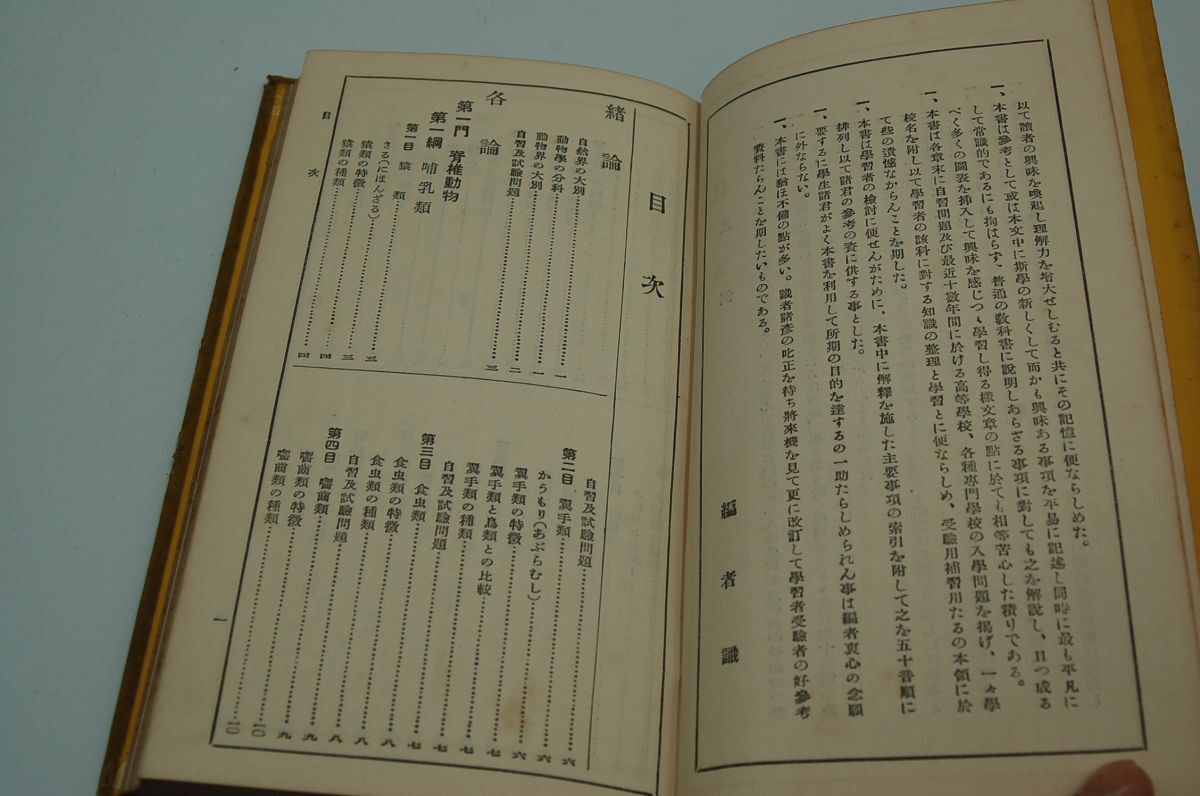 以て讀者の興味を喚起し理解力を增大せしむると共にその記憶に便ならしめた。
一、本書は參考として或は本文中に斯學の新しくして而かも興味ある事項を平易に記述し同時に最も平凡に
して常識的であるにも拘はらず、普通の敎科書に說明しあらざる事項に對しても之を解說し、且つ成る
べく多くの圖表を挿入して興味を感じつゝ學習し得る樣文章の點に於ても相等苦心した積りである。
一、本書は各章末に自習問題及び最近十數年間に於ける高等學校、各種專門學校の入學問題を揭げ、一々學
校名を附し以て學習者の該科に對する知識の整理と學習とに便ならしめ、受驗用補習用たるの本領に於
て些の遺憾なからんことを期した。
一、本書は學習者の檢討に便せんがために、本書中に解釋を施した主要事項の索引を附して之を五十音順に
排列し以て諸君の參考の資に供する事とした。
一、要するに學生諸君がよく本書を利用して所期の目的を達するの一助たらしめられん事は編者衷心の念願
に外ならない。
一、本書には猶ほ不備の點が多い。識者諸彥の叱正を待ち將來機を見て更に改訂して學習者受驗者の好參考
資料たらんことを期したいものである。
編者識
目次
緖論
自然界の大別……一
動物學の分科……一
動物界の大別……二
自習及試驗問題……三
各論
第一門 脊椎動物
第一綱 哺乳類
第一目 猿類
さる(にほんざる)……三
猿類の特徵……三
猿類の種類……四
自習及試驗問題……六
第二目 翼手類
かうもり(あぶらむし)……六
翼手類の特徵……六
翼手類と鳥類との比較……七
翼手類の種類……七
自習及試驗問題……七
第三目 食虫類
食虫類の特徵……八
食虫類の種類……八
自習及試驗問題……八
第四目 囓齒類
囓齒類の特徵……一〇
囓齒類の種類……一〇
目次
一